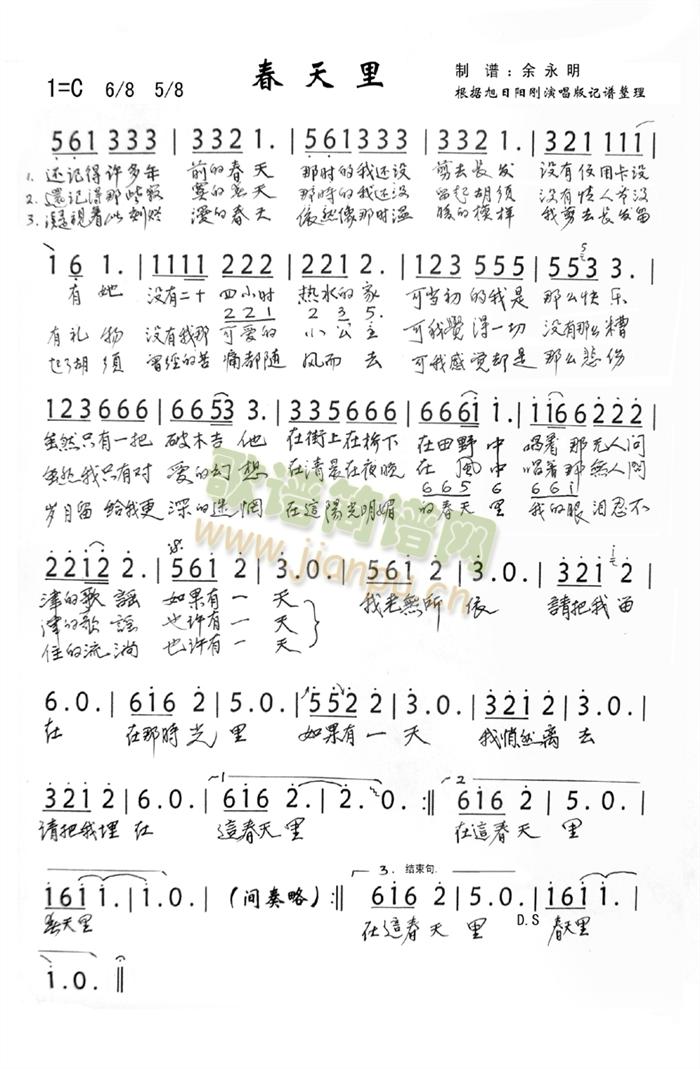 春天里
1=C 6/8 5/8
制 谱：余永明
根据旭日阳刚演唱版记谱整理
561 333 | 332 1. | 561 333 | 332 1. | 321 111 |
1. 还记得许多年 前的春天 那时的我还没 剪去长发 没有信用卡没
2. 還记得那些寂 寞的春天 那時的我还没 留起胡须 没有情人节没
3. 凝視着此刻烂 漫的春天 依然像那时温 暖的模样 我剪去长发留
1 6 1. | 1111 222 | 2221 2. | 123 555 | 5553 3. |
5
有她 没有二十 四小时 热水的家 可当初的我是 那么快乐
221 235.
有礼物 没有我那 可爱的 小公主 可我覺得一切 没有那么糟
起了胡须 曾经的苦 痛都随 风而去 可我感觉却是 那么悲伤
123666 | 6653 3. | 335666 | 6661 1. | 116 6222 |
虽然只有一把 破木吉他 在街上在桥下 在田野中 唱着那无人问
虽然我只有对 爱的幻想 在清晨在夜晚 在風中 唱着那無人問
6656 661
岁月留給我更 深的迷惘 在這陽光明媚 的春天里 我的眼泪忍不
2212 2. | 561 2 | 3.0. | 561 2 | 3.0. | 321 2 |
津的歌謡 如果有一天 我老無所依 請把我留
津的歌謡 也许有一天
住的流淌 也许有一天
6.0. | 616 2 | 5.0. | 552 2 | 3.0. | 321 2 | 3.0. |
在 在那時光里 如果有一天 我悄然离去
1 2
321 2 | 6.0. | 616 2. | 2.0. :‖ 616 2 | 5.0. |
請把我埋在 這春天里 在這春天里
3. 结束句.
161 1. | 1.0. | (间奏略) :‖ 616 2 | 5.0. | 161 1. |
D.S
春天里 在這春天里 春天里
1.0. ‖
歌谱简谱网
www.jianpu.cn